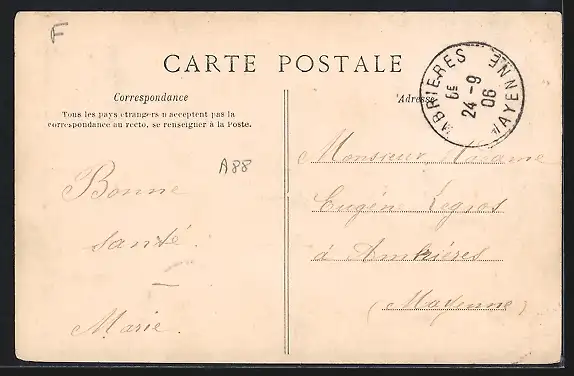 F
CARTE POSTALE
Correspondance
Tous les pays étrangers n'acceptent pas la
correspondance au recto, se renseigner à la Poste.
A88
Bonne
santé.
Marie.
Adresse
AMBRIERES
MAYENNE
6E
24 -9
06
Monsieur Madame
Eugène Legros
à Ambrières
(Mayenne)